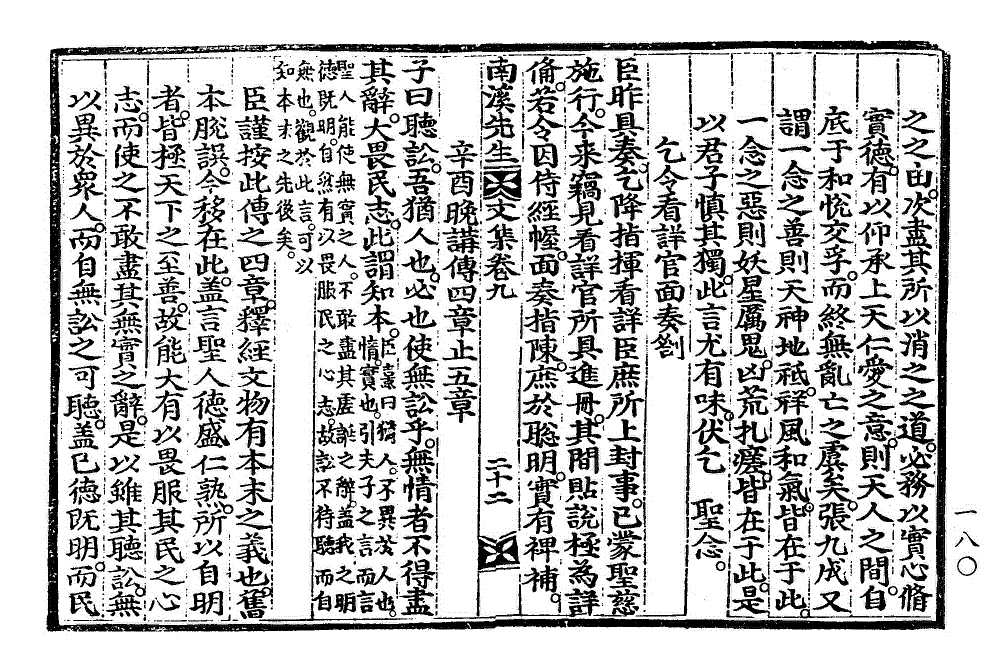 之之由。次盡其所以消之之道。必務以實心脩
實德。有以仰承上天仁愛之意。則天人之間。自
底于和悅交孚。而終無亂亡之虞矣。張九成又
謂一念之善則天神地祗祥風和氣。皆在于此。
一念之惡則妖星厲鬼。凶荒扎瘥。皆在于此。是
以君子愼其獨。此言尤有味。伏乞　聖念。
乞令看詳官面奏劄
臣昨具奏。乞降指揮看詳臣庶所上封事。已蒙聖慈
施行。今來竊見看詳官所具進冊。其間貼說極爲詳
備。若令因侍經幄。面奏指陳。庶於聡明。實有裨補。
南溪先生文集卷九　二十二
辛酉晚講傳四章止五章
子曰聽訟。吾猶人也。必也使無訟乎。無情者不得盡
其辭。大畏民志。此謂知本。臣熹曰猶人。不異於人也。
情。實也。引夫子之言而言
聖人能使無實之人。不敢盡其虛誕之辭。蓋我之明
德旣明。自然有以畏服民之心志。故訟不待聽而自
無也。觀於此言。可以
知本末之先後矣。
臣謹按此傳之四章。釋經文物有本末之義也。舊
本脫誤。今移在此。蓋言聖人德盛仁熟。所以自明
者。皆極天下之至善。故能大有以畏服其民之心
志。而使之不敢盡其無實之辭。是以雖其聽訟。無
以異於衆人。而自無訟之可聽。蓋己德旣明。而民
一八〇